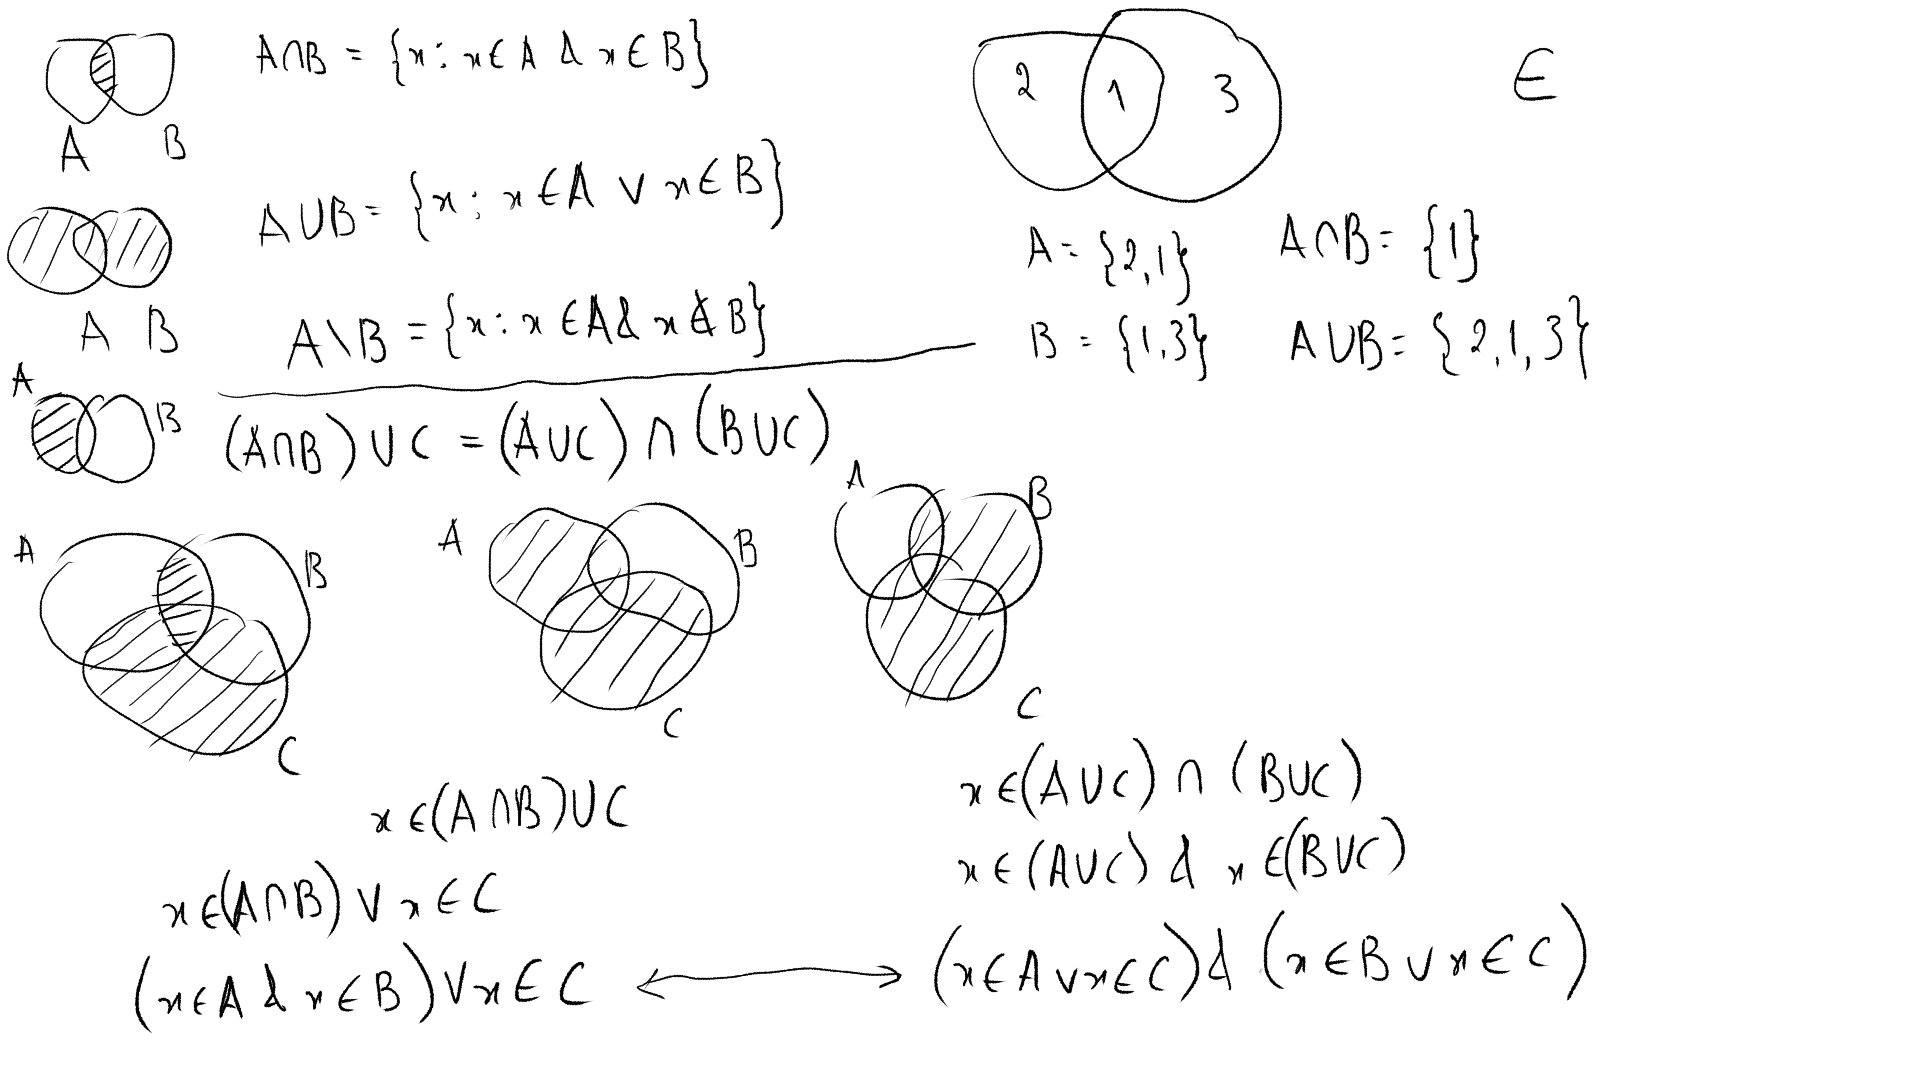 A∩B = {x : x∈A & x∈B}
A B
A∪B = {x : x∈A ∨ x∈B}
A B
A\B = {x : x∈A & x∉B}
A B
2 1 3
∈
A = {2,1} A∩B = {1}
B = {1,3} A∪B = {2,1,3}
(A∩B)∪C = (A∪C)∩(B∪C)
A B C
A B C
A B C
x∈(A∩B)∪C
x∈(A∩B) ∨ x∈C
(x∈A & x∈B) ∨ x∈C ↔ (x∈A ∨ x∈C) & (x∈B ∨ x∈C)
x∈(A∪C)∩(B∪C)
x∈(A∪C) & x∈(B∪C)